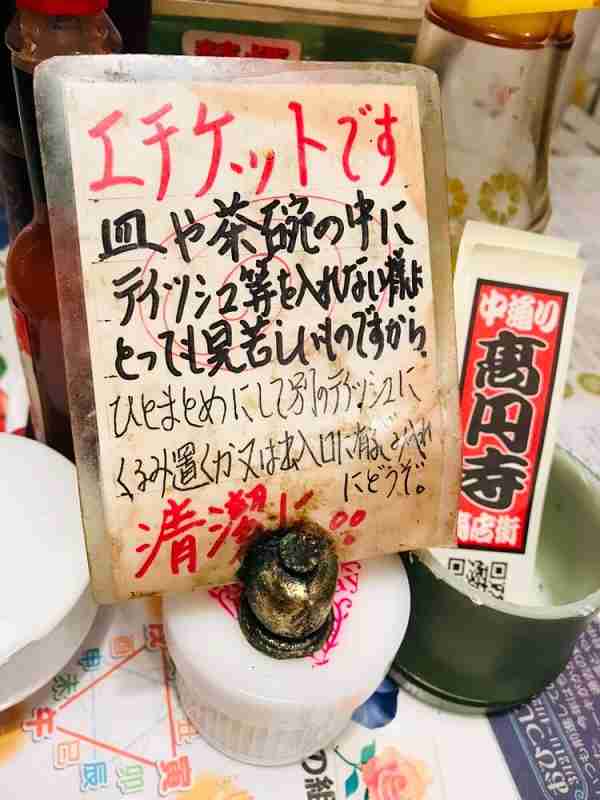 エチケットです
皿や茶碗の中に
ティッシュ等を入れない様よ
とっても見苦しいものですから、
ひとまとめにして別のティッシュに
くるみ置くか又は出入口に有る
にどうぞ。
清潔に
中通り
高円寺
商店街
戌
酉
申
未
午
巳
辰
卯
寅
丑
の組